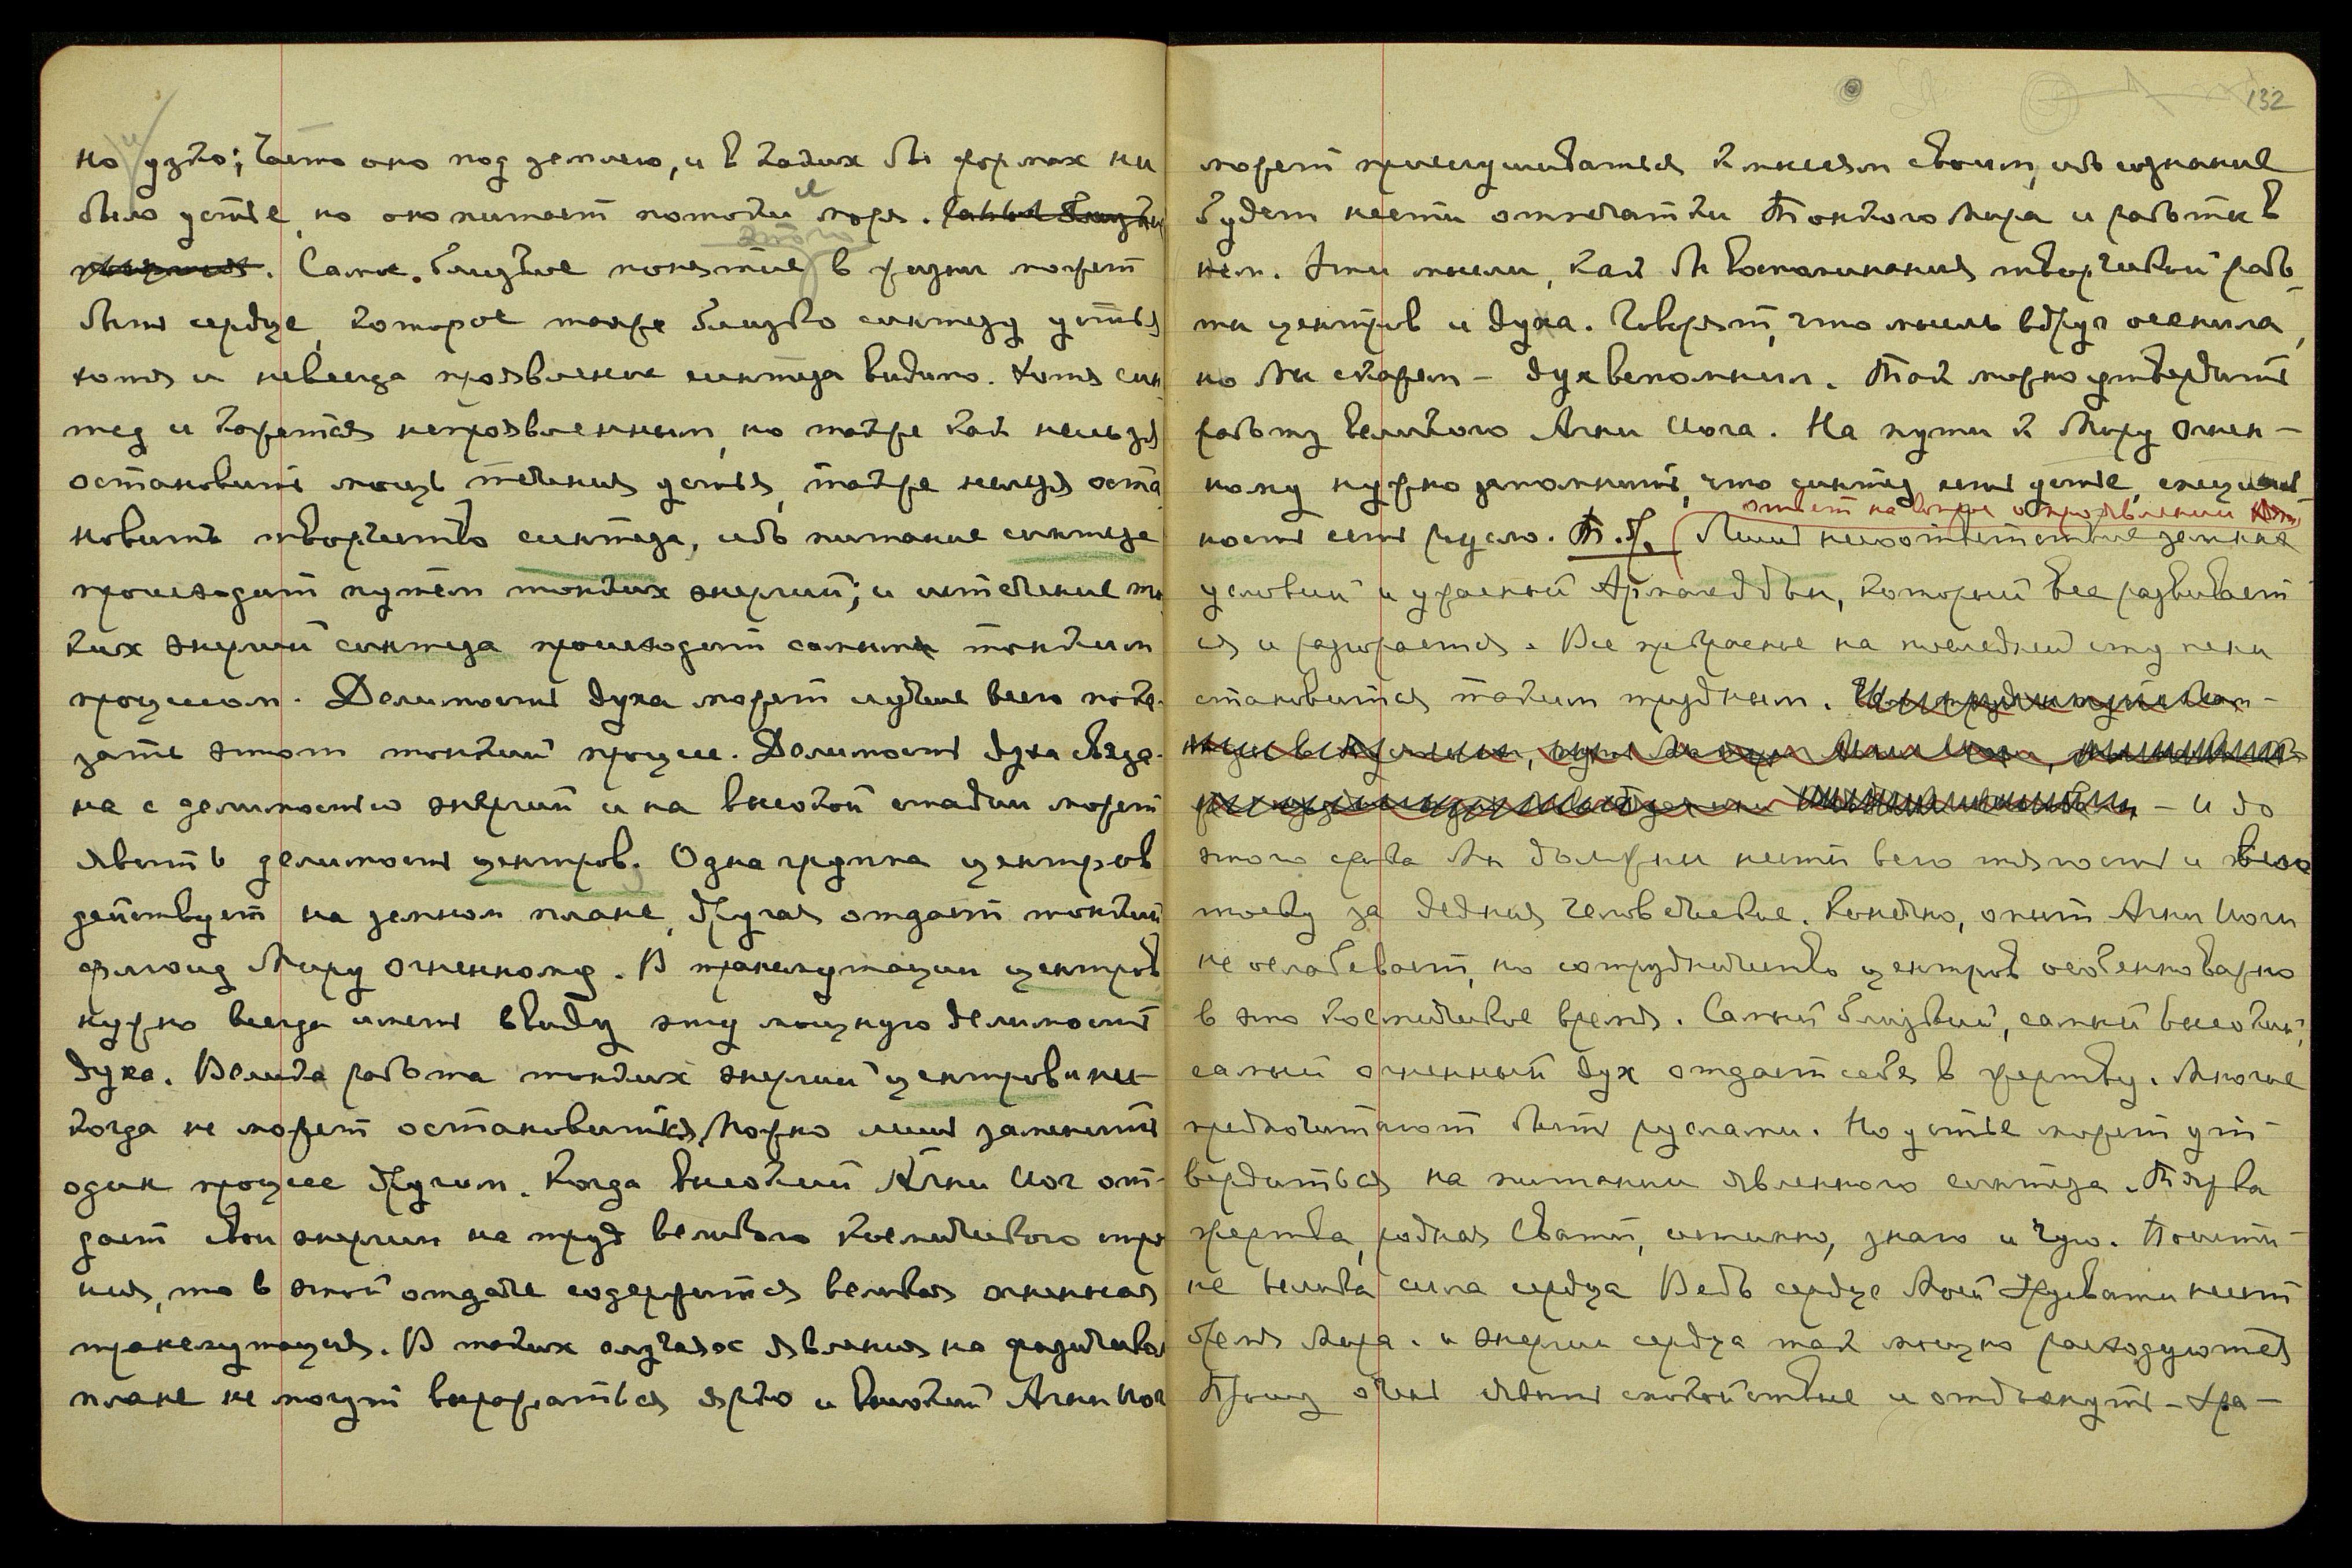 132
но узко; часто оно под землею, и в каких бы формах ни
было устье, но оно питает потоки и моря. Самое близкое
. Самое близкое понятие этого в жизни может
быть сердце, которое также близко синтезу устья,
хотя и невсегда проявление синтеза видимо. Хотя син
тез и кажется непроявленным, но также как нельзя
остановить мощь течения устья, также нельзя оста
новить творчество синтеза, ибо питание синтеза
происходит путем тонких энергий; и истечение тон
ких энергий синтеза происходит самым тонким
процессом. Делимость духа может лучше всего пока-
зать этот тонкий процесс. Делимость духа связа-
на с делимостью энергий и на высокой стадии может
явить делимость центров. Одна группа центров
действует на земном плане, другая отдает тонкий
флюид Миру Огненному. В трансмутации центров
нужно всегда иметь ввиду эту мощную делимость
духа. Велика работа тонких энергий центров и ни-
когда не может остановиться, Можно лишь заменить
один процесс другим. Когда высокий Агни Йог от-
дает свои энергии на труд великого космического строе
ния, то в этой отдаче содержится великая огненная
трансмутация. В таких случаях явления на физическом
плане не могут выражаться ярко и высокий Агни Йог
может прислушиваться к мыслям своим, ибо сознание
будет нести отпечатки Тонкого Мира и работы в
нем. Эти мысли, как бы воспоминания творческой рабо-
ты центров и духа. Говорят, что мысль вдруг осенила,
но Мы скажем – дух вспомнил. Так можно утвердить
работу великого Агни Йога. На пути к Миру Огнен-
ному нужно запомнить, что синтез есть устье, специаль
ответ на вопрос о проявлении
ность есть русло. Т. Г. (Лишь несоответствие земных
условий и ужасный Армагеддон, который все развивает
ся и разгорается. Все пребывание на последней ступени
становится таким трудным.
– и до
этого срока Мы должны нести всю тягость и всю
тоску за деяния человеческие. Конечно, опыт Агни Йоги
не ослабевает, но сотрудничество центров особенно важно
в это космическое время. Самый близкий, самый высокий,
самый огненный дух отдает себя в жертву. Многие
предпочитают быть руслами. Но устье может ут-
вердиться на питании явленного синтеза. Тяжка
жертва, родная Свати, истинно, знаю и чую. Поисти-
не велика сила сердца Ведь сердце Моей Урусвати несет
бремя Мира. и энергии сердца так мощно расходуются
Прошу очень явить спокойствие и отдохнуть – Хра-